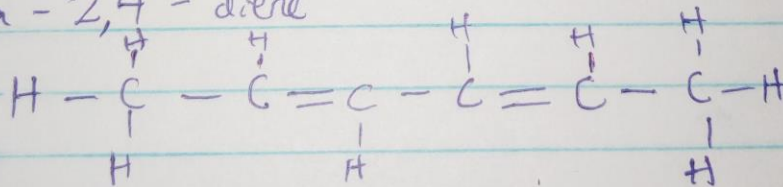 - 2,4 - diene
H H H H H
H - C - C = C - C = C - C - H
H H H